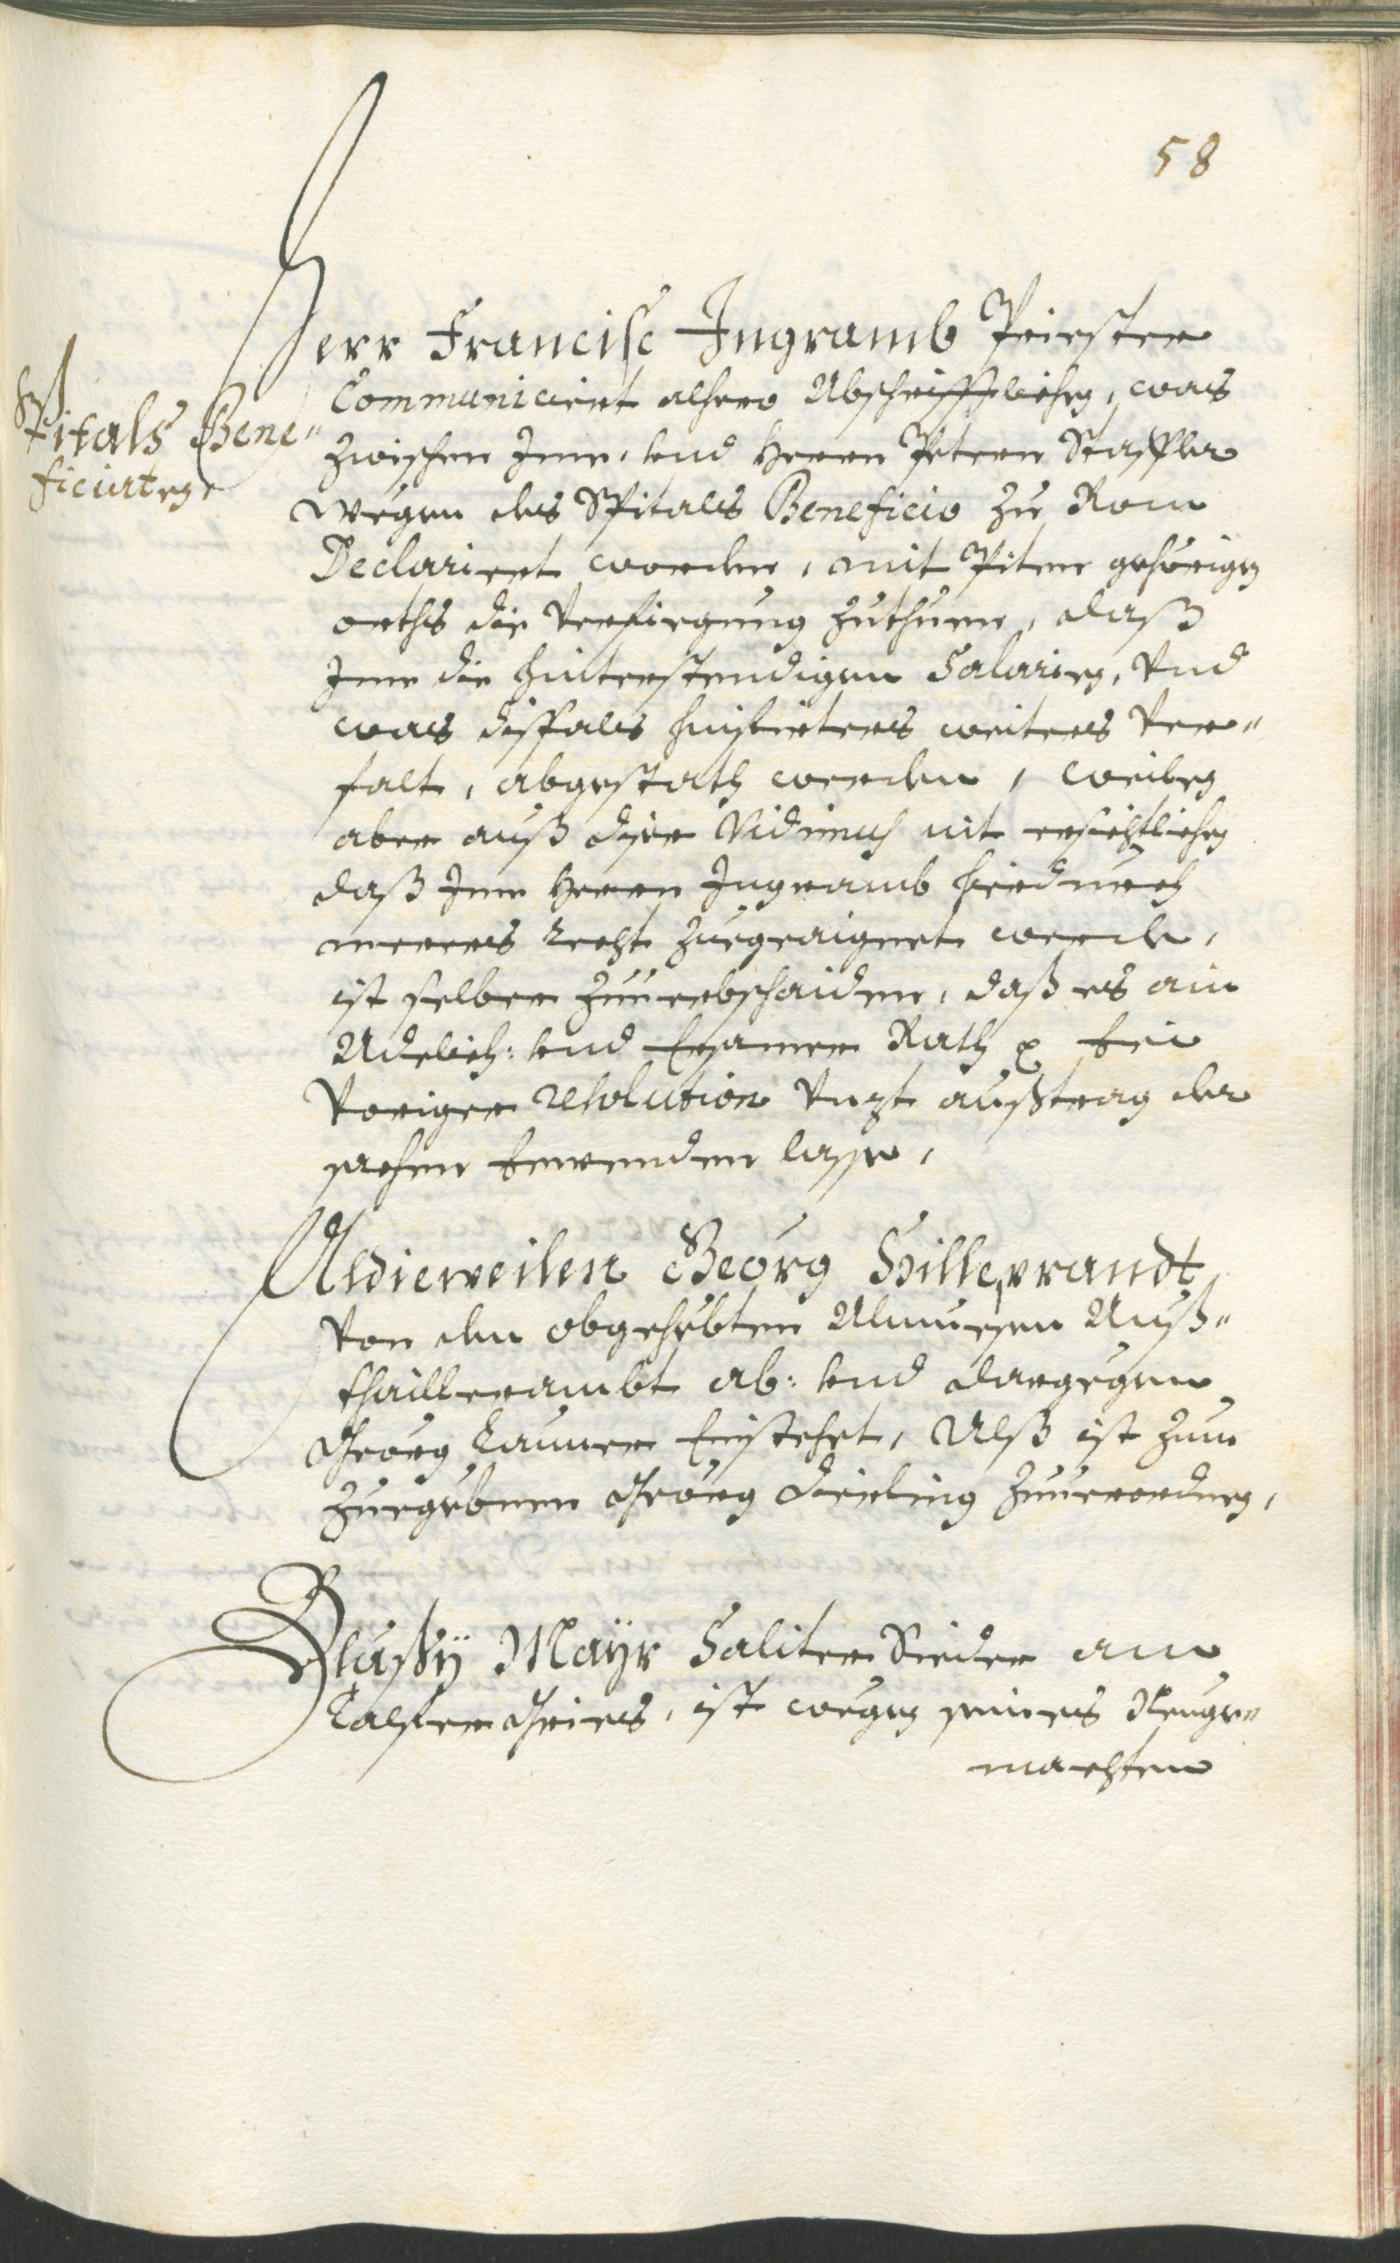 58
Spitals Bene„
ficiarten
Herr Francisc Ingramb Priester
Communiciert alhero Abschrifftlichen, was
zwischen Ime, und Herrn Petern Staffler
wegen des Spitals Beneficio zu Rom
Declariert worden, mit Piten gehörigen
orths die Verfiegung zuthuen, daß
Ime die hinterstendigen Salarien, Vnd
was dißfals hinfierters weiters Ver„
falt, abgestath werden, weilen
aber auß diser Vidimus nit ersichtlichen
daß Ime Herrn Ingramb hierdurch
merers Recht zuegeaignet werde,
ist selber zuuerbschaiden, daß es ain
Adelich: und Ersamer Rath bei
Voriger resolution Vnzt außtrag der
sachen bewenden lasse,
Aldieweilen Georg Hilleprandt
Von dem obgehebten Almuesen Auß„
thaillerambt ab: und dargegen
Georg Launer Einstehet, Alß ist zum
zuegebnen Georg zuuerordnen,
Blaßy Mayr Saliter Sieder am
Talfer Gries, ist wegen seines Neuge„
machten